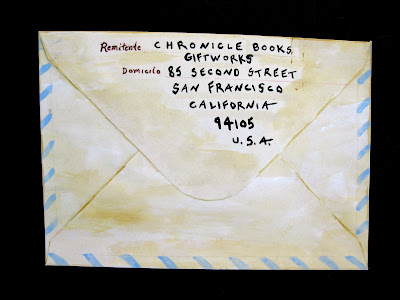 Remitente CHRONICLE BOOKS
GIFTWORKS
Domicilo 85 SECOND STREET
SAN FRANCISCO
CALIFORNIA
94105
U.S.A.